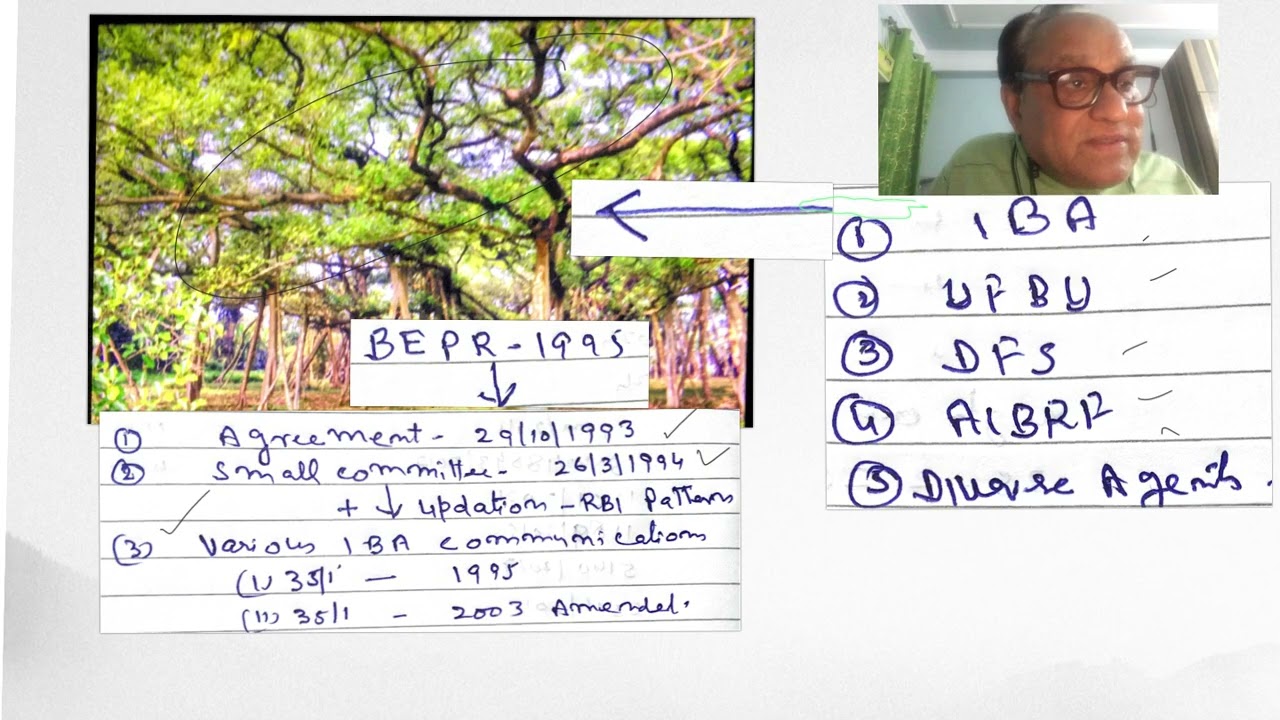 BEPR - 1995
① Agreement - 29/10/1993
② Small committee - 26/3/1994
+ ↓ updation - RBI Pattern
(3) Various IBA communications
(i) 35/1 — 1995
(ii) 35/1 - 2003 Amended.
① IBA
② UFBU
③ DFS
④ AIBRF
⑤ Diverse Agents.